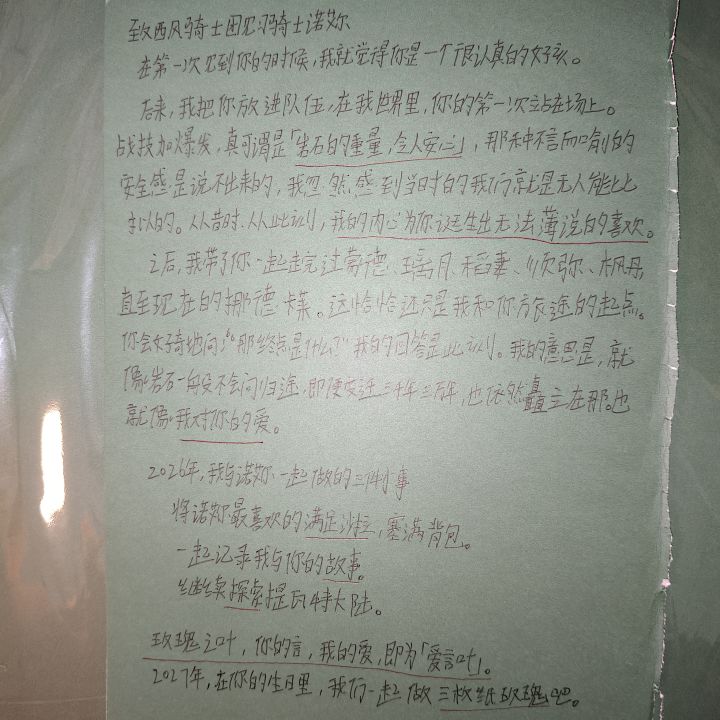 致西风骑士团见习骑士诺艾尔
在第一次见到你的时候，我就觉得你是一个很认真的女孩。
后来，我把你放进队伍，在我世界里，你的第一次站在场上。
战技加爆发，真可谓是「岩石的重量，令人安心」，那种不言而喻的
安全感是说不出来的，我忽然感到当时的我们就是无人能比
拟的。从昔时、从此刻，我的内心为你诞生出无法薄说的喜欢。
之后，我带了你一起走完过蒙德、璃月、稻妻、须弥、枫丹，
直至现在的挪德卡莱。这恰恰还只是我和你旅途的起点。
你会好奇地问：“那终点是什么？”我的回答是此刻。我的意思是，就
像岩石一每文不会问归途，即便变迁三千年三万年，也依然矗立在那。也
就像我对你的爱。
2026年，我与诺艾尔一起做的三件小事
将诺艾尔最喜欢的满足沙拉，塞满背包。
一起记录我与你的故事。
继续探索提瓦特大陆。
玫瑰之叶，你的言，我的爱，即为「爱言叶」。
2027年，在你的生日里，我们一起做三枚纸玫瑰吧。